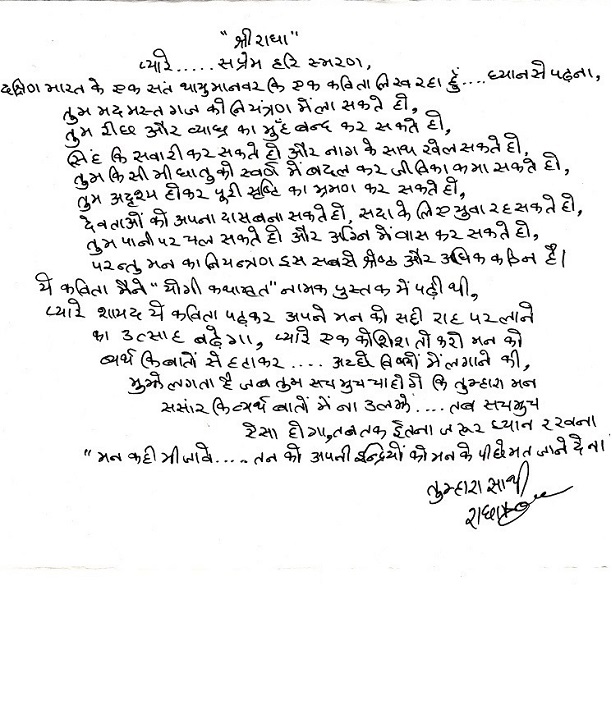 "श्री राधा"
प्यारे..... सप्रेम हरि स्मरण,
दक्षिण भारत के एक संत थायुमानवर कि एक कविता लिख रहा हूँ....ध्यान से पढ़ना,
तुम मदमस्त गज को नियंत्रण में ला सकते हो,
तुम रीछ और व्याघ्र का मुँह बन्द कर सकते हो,
सिंह कि सवारी कर सकते हो और नाग के साथ खेल सकते हो,
तुम किसी भी धातु को स्वर्ण में बदल कर जीविका कमा सकते हो,
तुम अदृश्य होकर पूरी सृष्टि का भ्रमण कर सकते हो,
देवताओं को अपना दास बना सकते हो, सदा के लिए युवा रह सकते हो,
तुम पानी पर चल सकते हो और अग्नि में वास कर सकते हो,
परन्तु मन का नियन्त्रण इस सबसे श्रेष्ठ और अधिक कठिन है।
ये कविता मैने "योगी कथामृत" नामक पुस्तक में पढ़ी थी,
प्यारे शायद ये कविता पढ़कर अपने मन को सही राह पर लाने
का उत्साह बढ़ेगा, प्यारे एक कोशिश तो करो मन को
व्यर्थ कि बातों से हटाकर .... अच्छे विषयों में लगाने की,
मुझे लगता है जब तुम सचमुच चाहोगे कि तुम्हारा मन
संसार कि व्यर्थ बातों में ना उलझे .... तब सचमुच
ऐसा होगा, तब तक इतना जरूर ध्यान रखना
"मन कही भी जावे..... तन को अपनी इन्द्रियों को मन के पीछे मत जाने देना
तुम्हारा साथी
राधा